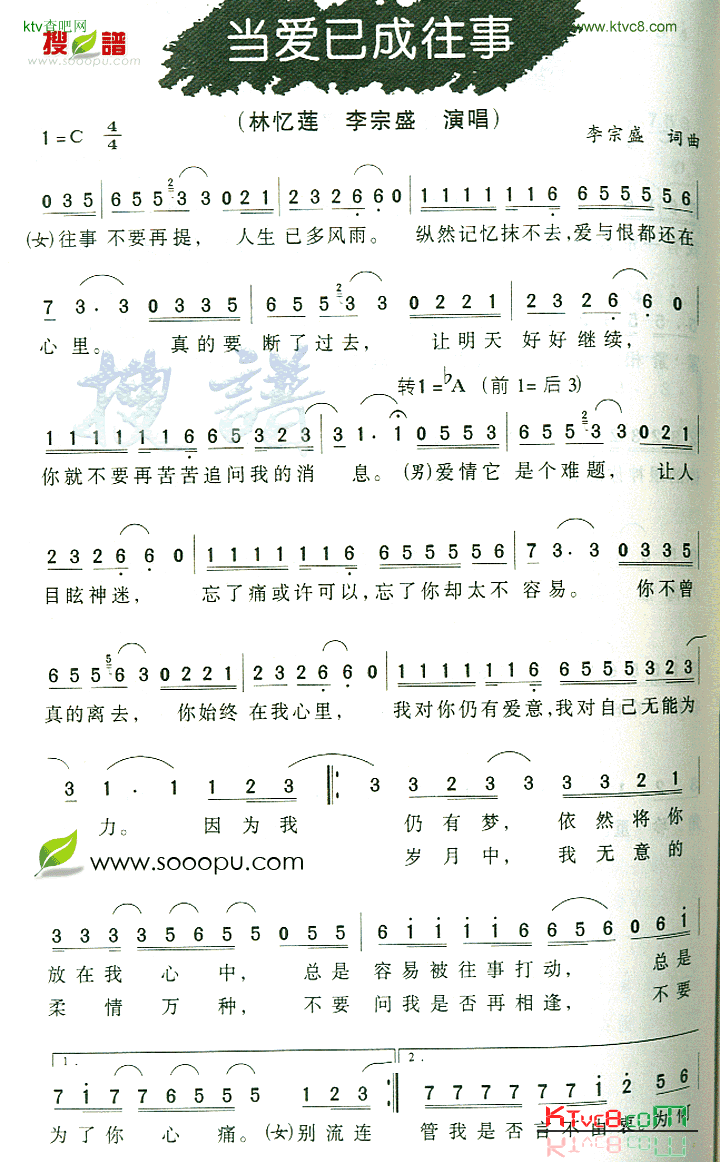 ktv查吧网
www.ktvc8.com
搜谱
www.sooopu.com
当爱已成往事
(林忆莲 李宗盛 演唱)
1=C 4/4
李宗盛 词曲
0 3 5 6 5 5 2 3 3 0 2 1 2 3 2 6 6 0 1 1 1 1 1 1 6 6 5 5 5 5 5 6
(女)往事 不要再提, 人生 已多风雨。 纵然记忆抹不去,爱与恨都还在
7 3 · 3 0 3 3 5 6 5 5 2 3 3 0 2 2 1 2 3 2 6 6 0
心里。 真的要 断了过去, 让明天 好好继续,
搜谱
转1=♭A (前1=后3)
1 1 1 1 1 1 6 6 5 3 2 3 3 1 · 1 0 5 5 3 6 5 5 2 3 3 0 2 1
你就不要再苦苦追问我的消 息。(男)爱情它 是个难题, 让人
2 3 2 6 6 0 1 1 1 1 1 1 6 6 5 5 5 5 6 7 3 · 3 0 3 3 5
目眩神迷, 忘了痛或许可以,忘了你却太不 容易。 你不曾
6 5 5 5 6 3 0 2 2 1 2 3 2 6 6 0 1 1 1 1 1 1 6 6 5 5 5 3 2 3
真的离去, 你始终 在我心里, 我对你仍有爱意,我对自己无能为
3 1 · 1 1 2 3 :‖ 3 3 2 3 3 3 3 2 1
力。 因为我 仍有梦, 依然将你
岁月中, 我无意的
www.sooopu.com
3 3 3 3 5 6 5 5 0 5 5 6 i i i i 6 5 6 5 0 6 i
放在我 心中, 总是 容易被往事打动, 总是
柔情万种, 不要 问我是否再相逢, 不要
1. 2.
7 i 7 7 6 5 5 5 5 1 2 3 :‖ 7 7 7 7 7 7 i 2 5 6
为了你 心痛。(女)别流连 管我是否言不由衷。为何
KTvc8.com